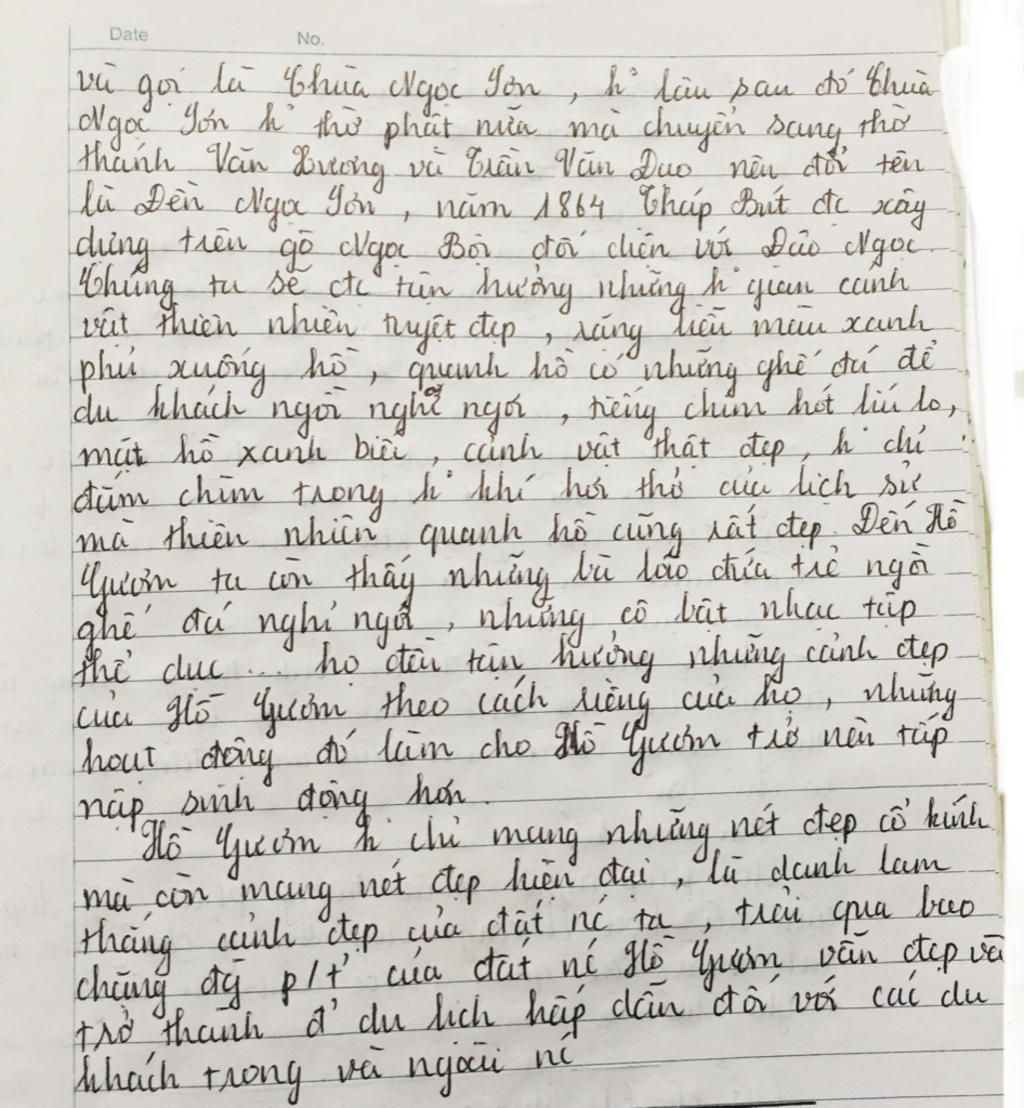 Date No.
và gọi là Chùa Ngọc Sơn, k° lâu sau đó Chùa
Ngọc Sơn k° thờ phật nữa mà chuyển sang thờ
thánh Văn Xương và Trần Văn Đạo nên đổi tên
là Đền Ngọc Sơn, năm 1864 Tháp Bút đc xây
dựng trên gò Ngọc Bội đối diện với Đảo Ngọc.
Chúng ta sẽ đc tận hưởng những k° gian cảnh
vật thiên nhiên tuyệt đẹp, rặng liễu màu xanh
phủ xuống hồ, quanh hồ có những ghế đá để
du khách ngồi nghỉ ngơi, tiếng chim hót líu lo,
mặt hồ xanh biếc, cảnh vật thật đẹp, k° chỉ
đắm chìm trong k° khí hơi thở của lịch sử
mà thiên nhiên quanh hồ cũng rất đẹp. Đến Hồ
Gươm ta còn thấy những bà lão đứa trẻ ngồi
ghế đá nghỉ ngơi, những cô bật nhạc tập
thể dục ... họ đều tận hưởng những cảnh đẹp
của Hồ Gươm theo cách riêng của họ, những
hoạt động đó làm cho Hồ Gươm trở nên tấp
nập sinh động hơn.
Hồ Gươm k° chỉ mang những nét đẹp cổ kính
mà còn mang nét đẹp hiện đại, là danh lam
thắng cảnh đẹp của đất nc ta, trải qua bao
chặng đg p/t' của đất nc Hồ Gươm vẫn đẹp và
trở thành đ' du lịch hấp dẫn đối với các du
khách trong và ngoài nc